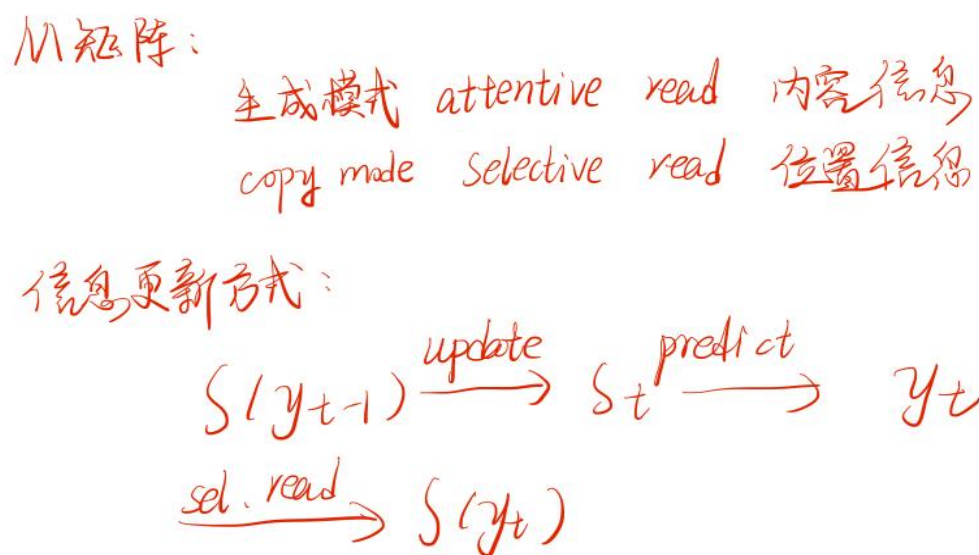 M矩阵：
生成模式 attentive read 内容信息
copy mode selective read 位置信息
信息更新方式：
S(y_{t-1}) \xrightarrow{update} S_t \xrightarrow{predict} y_t
\xrightarrow{sel. read} S(y_t)